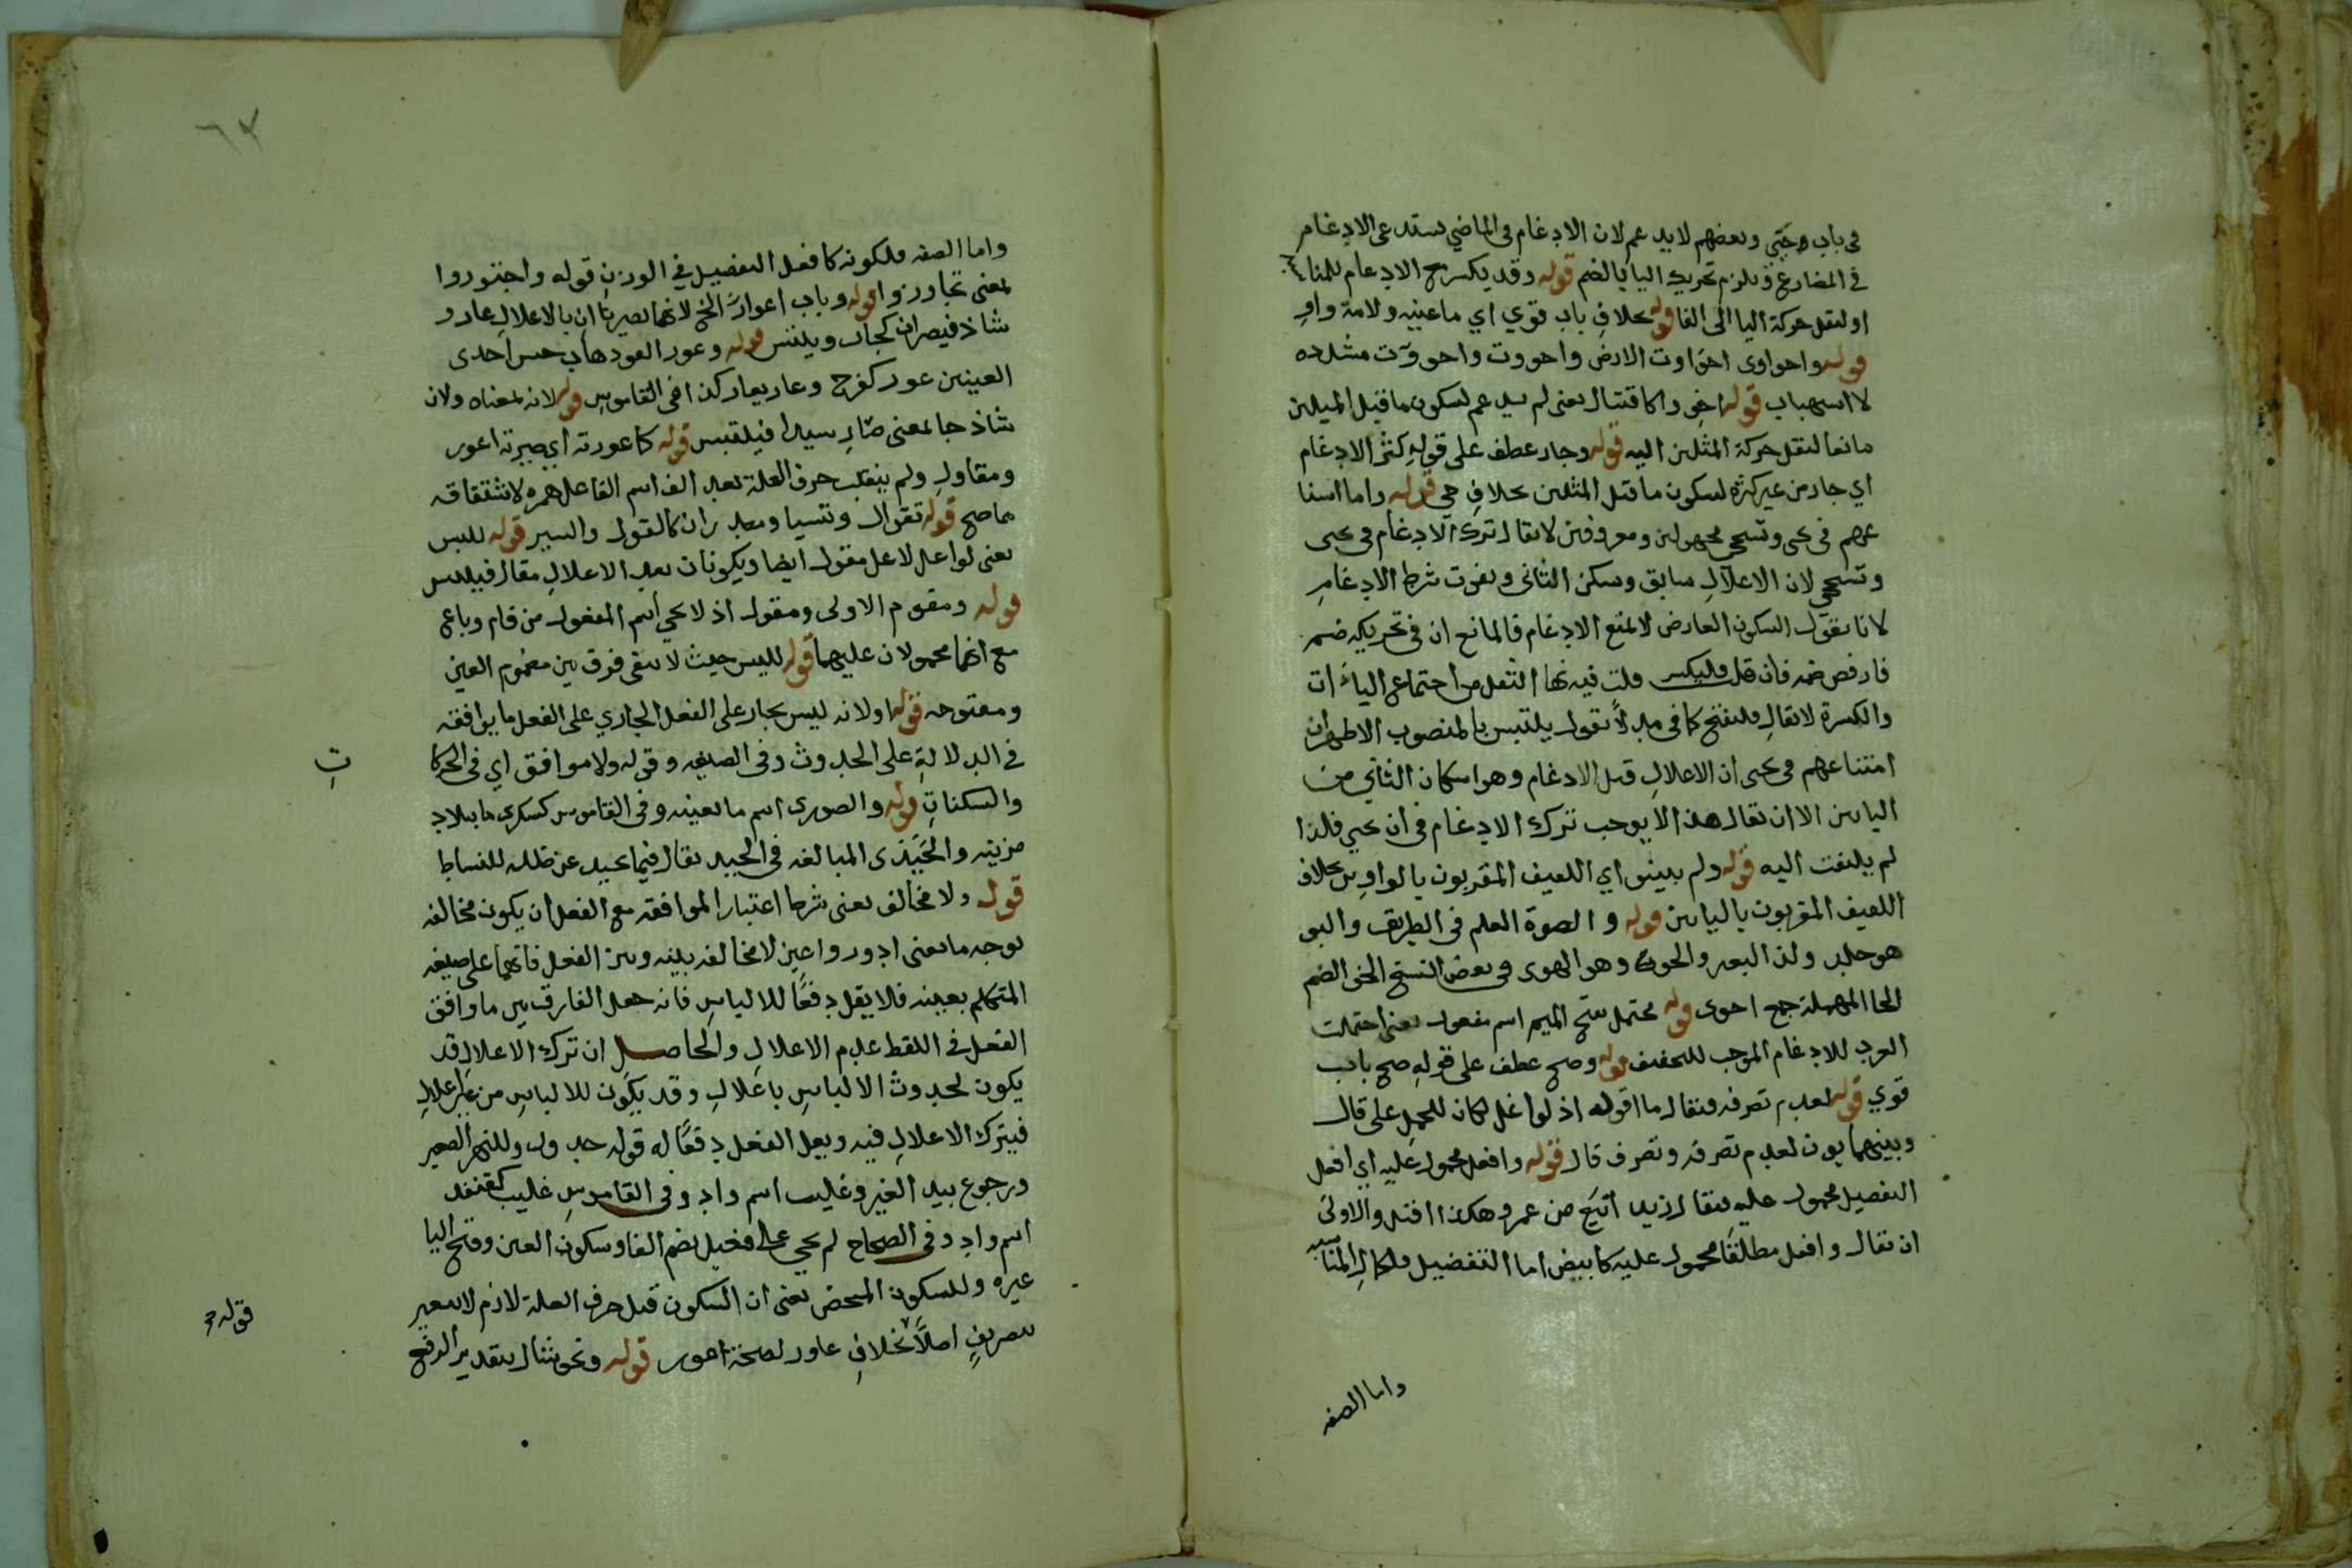 في باب وحيي وبعضهم لا يدغم لان الادغام في الماضي يستدعي الادغام
في المضارع ويلزم تحريك اليا بالضم قوله وقد يكسر مع الادغام للمنا
او لنقل حركة اليا الى الفا قوله بخلاف باب قوي اي ما عينه ولامه واو
قوله واحواوى احواوت الارض واحووت واحووّت مشدده
لا اسهباب قوله كاقتتال يعنى لم يدغم لسكون ما قبل المثلين
مانعا لنقل حركة المثلين اليه قوله وجاز عطف على قوله كثر الادغام
اي جاز من غير كثرة لسكون ما قبل المثلين بخلاف حي قوله واما امتنا
عهم في يحيى ويستحيي مجهولين ومعروفين لا يقال ترك الادغام في يحيى
ويستحيي لان الاعلال سابق وسكن الثانى ويفوت شرط الادغام
لانا نقول السكون العارض لا يمنع الادغام فالمانع ان في تحريكه ضم
فارفض ضمه فان قيل فليكسر قلت فيه نهاية الثقل من اجتماع الياآت
والكسرة لا يقال فليفتح كما في مد لانا نقول يلتبس بالمنصوب الاظهر ان
امتناعهم في يحيى ان الاعلال قبل الادغام وهو اسكان الثاني من
اليائين الا ان يقال هذا لا يوجب ترك الادغام في ان يحيي فلذا
لم يلتفت اليه قوله ولم يبينوا اي اللفيف المقرون بالواوين بخلاف
اللفيف المقرون باليائين قوله و الصوة العلم في الطريق والبو
هو جلد ولد البعير والحوى وهو الهوى في بعض النسخ الحى الضم
الحا المهملة جمع احوى قوله محتمل بفتح الميم اسم مفعول يعنى احتملت
العرب للادغام الموجب للتخفيف قوله وصح عطف على قوله صح باب
قوي قوله لعدم تصرفه فيقال ما اقوله اذ لو اعل لكان للحمل على قال
وبينهما بون لعدم تصرفه وتصرف قال قوله وافعل محمول عليه اي افعل
التفضيل محمول عليه فيقال زيد ابيع من عمرو هكذا اقتل والاولى
ان يقال وافعل مطلقا محمول عليه كابيض اما التفضيل فلكمال المناسبه
واما الصفه
٦٧
واما الصفه فلكونه كافعل التفضيل في الوزن قوله واجتوروا
لمعنى تجاوروا قوله وباب اعوارّ الخ لانهما يصيران بالاعلال عار و
شاذ فيصيران كحاب ويلتبس قوله وعور العور ذهاب حس احدى
العينين عور كفرح وعار يعار كذا في القاموس قوله لانه بمعناه ولان
شاذ جا بمعنى صار سيدا فيلتبس قوله كاعورته اي صيرته اعور
ومقاول ولم ينقلب حرف العلة بعد الف اسم الفاعل همزه لاشتقاقه
مما صح قوله تقوال وتسيار مصدران كالقول والسير قوله للبس
يعنى لو اعل لاعل مقول ايضا ويكونان بعد الاعلال مقال فيلتبس
قوله ومقوم الاولى ومقول اذ لا يجي اسم المفعول من قام وباع
مع انهما محمولان عليهما قوله للبس حيث لا يبقى فرق بين مضموم العين
ومفتوحه قوله اولانه ليس بجار على الفعل الجاري على الفعل ما يوافقه
في الدلالة على الحدوث وفى الصيغه وقوله ولا موافق اي في الحركا
ت
والسكنات قوله والصورى اسم ما بعينه وفى القاموس كسكرى ما ببلاد
مزينه والحيدى المبالغه في الحيد يقال فيما يحيد عن ظله للنشاط
قوله ولا مخالف يعنى شرط اعتبار الموافقه مع الفعل ان يكون مخالفه
بوجه ما يعنى ادور واعين لا مخالفه بينه وبين الفعل فانهما على صيغه
المتكلم بعينه فلا يقل دفعا للالباس فانه جعل الفارق بين ما وافق
الفعل في اللفظ عدم الاعلال والحاصل ان ترك الاعلال قد
يكون لحدوث الالباس باعلال وقد يكون للالباس من غير اعلال
فيترك الاعلال فيه ويعل الفعل دفعا له قوله جدول وللنهر الصغير
وخروع بيد الغير وعليب اسم واد وفى القاموس عليب كقنفذ
اسم واد وفى الصحاح لم يجي على فعيل بضم الفا وسكون العين وفتح اليا
غيره وللسكون المحض يعنى ان السكون قبل حرف العلة لازم لا يتغير
بتصريف اصلا بخلاف عاور لصحة اعور قوله ونحو ينال بتقدير الرفع
قوله و